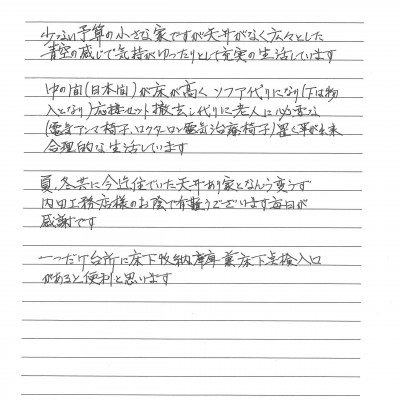 少ない予算の小さな家ですが天井がなく広々とした
青空の感じで気持がゆったりとして充実の生活しています
中の間(日本間)が床が高く ソファ代りになり(下は物
入となり)応接セット撤去し代りに老人に必要な
(電気アンマ椅子、ロクターロン電気治療椅子)置く事が出来
合理的な生活しています
夏、冬共に今迄住でいた天井あり家となんら変らず
内田工務店様のお陰で有難うございます毎日が
感謝です
一つだけ台所に床下収納庫兼床下点検入口
があると便利と思います